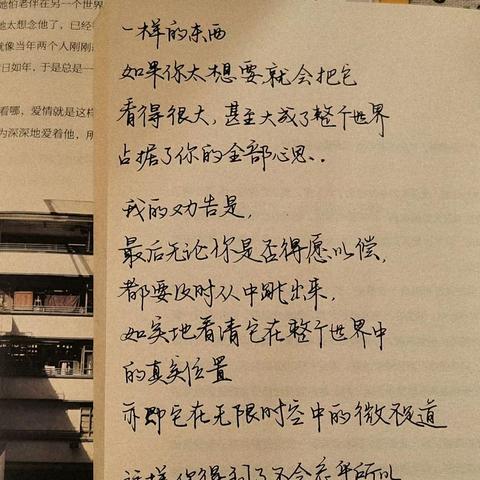 她怕老伴在另一个世界
她太想念他了，已经
就像当年两个人刚刚
日如年，于是总是一
看哪，爱情就是这样
为深深地爱着他，所
一样的东西
如果你太想要就会把它
看得很大，甚至大成了整个世界
占据了你的全部心思..
我的劝告是，
最后无论你是否得愿以偿，
都要及时从中跳出来，
如实地看清它在整个世界中
的真实位置
亦即它在无限时空中的微不足道
这样你得到了不会忘乎所以